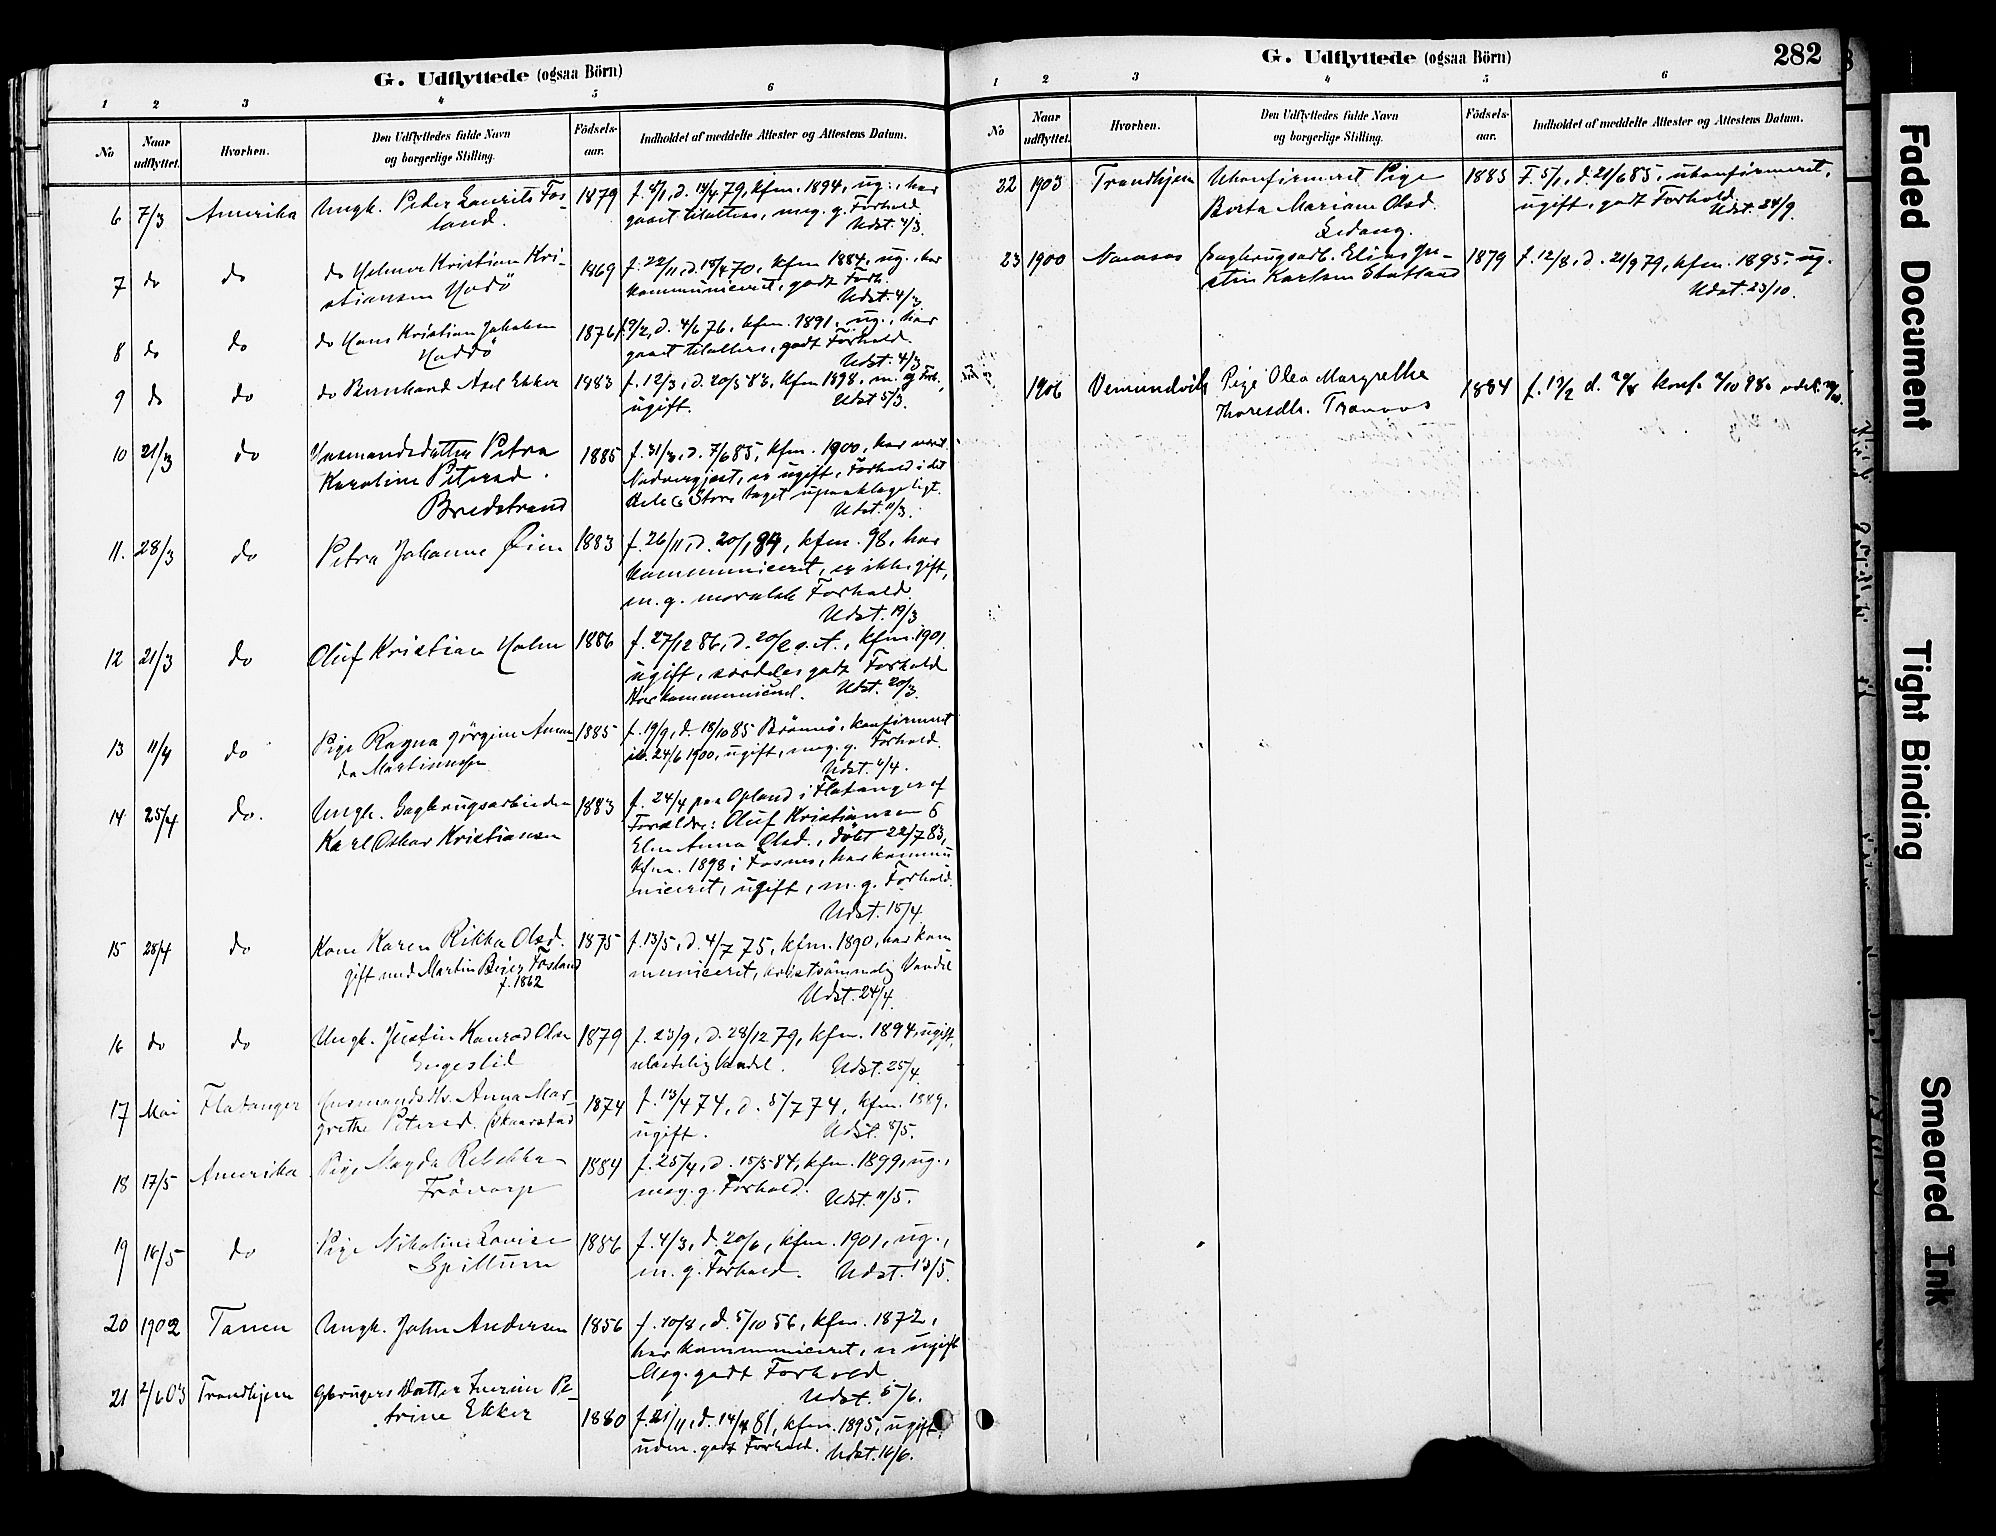 G. Udflyttede (ogsaa Börn)
1 2 3 4 5 6
No
Naar udflyttet.
Hvorhen.
Den Udflyttedes fulde Navn og borgerlige Stilling.
Födsels-aar.
Indholdet af meddelte Attester og Attestens Datum.
6 7/3 Amerika Ungk. Peder Laurits Fos- 1879 d. 13/4 79, kfm. 1894, ug., har
land. gaaet tilalters, meg. g. Forhold.
Udst. 4/3.
7 do do do Helmer Kristian Kri- 1869 f. 22/11, d. 18/4 70, kfm 1884, ug., har
stiansen Hodö kommuniceret, godt Forh.
Udst. 4/3
8 do do do Hans Kristian Jakobsen 1876 d. 4/6 76, kfm. 1891, ug., har
Hoddö gaaet tilalters, godt Forhold.
Udst. 4/3
9 do do do Bernhard Axel Ekker 1883 f. 12/3, d. 20/5 83, kfm 1898, m. g. Forh.,
ugift. Udst 5/3.
10 21/3 do Husmandsdatter Petra 1885 f. 31/3, d. 7/6 85, kfm. 1900, har været
Karoline Petersd. Nadvergjæst, er ugift, Forhold i det
Bredstrand Hele & Store taget upaaklageligt.
Udst. 11/3.
11. 28/3 do Petra Johanne Öien 1883 f. 26/11, d. 20/1 84, kfm. 98, har
kommuniceret, er ikke gift,
m. g. moralsk Forhold.
Udst. 19/3
12 21/3 do Oluf Kristian Holm 1886 f. 27/12 86, d. 20/2 kfm. 1901
ugift, særdeles godt Forhold
Har kommuniceret. Udst. 20/3.
13 11/4 do Pige Ragna Jörgine Aman- 1885 f. 19/9, d. 18/10 85 Brönnö, konfirmeret
da Martinussen 24/6 1900, ugift, meg. g. Forhold.
Udst. 4/4.
14 25/4 do. Ungk. Sagbrugsarbeider 1883 f. 24/4 paa Opland i Flatanger af
Karl Oskar Kristiansen Forældre: Oluf Kristiansen &
Elen Anna Olsd., döbt 22/7 83,
kfm. 1898 i Fosnes, har kommu
niceret, ugift, m. g. Forhold.
Udst. 15/4
15 28/4 do Kone Karen Rikka Olsd. 1875 f. 13/5, d. 4/7 75, kfm. 1890, har kom
gift med Martin Beier Fosland municeret, kristsömmelig Vandel
f. 1862 Udst. 24/4.
16 do do Ungk. Justin Konrad Olsen 1879 f. 23/9, d. 28/12 79, kfm. 1894, ugift,
Engeslid ulastelig Vandel. Udst. 25/4.
17 Mai Flatanger Husmandsdtr. Anna Mar- 1874 f. 13/4 74, d. 5/7 74, kfm. 1889,
grethe Petersd. Skaarstad ugift. Udst. 8/5.
18 17/5 Amerika Pige Magda Rebekka 1884 f. 25/4, d. 15/5 84, kfm. 1899, ug.,
meg. g. Forhold. Udst. 11/5.
19 16/5 do Pige Nikoline Lovise 1886 f. 4/3, d. 20/6, kfm. 1901, ug.,
Spillum m. g. Forhold. Udst. 13/5.
20 1902 Tanen Ungk. John Andersen 1856 f. 10/8, d. 5/10 56, kfm. 1872,
har kommuniceret, er ugift
Meg. godt Forhold.
Udst. 5/6.
21 2/6 03 Trondhjem Gbrugers Datter Pe- 1880 f. 21/11, d. 14/4 81, kfm. 1895, ugift,
trine Ekker udm. godt Forhold. Udst. 16/6.
G. Udflyttede (ogsaa Börn) 282
1 2 3 4 5 6
No
Naar udflyttet.
Hvorhen.
Den Udflyttedes fulde Navn og borgerlige Stilling.
Födsels-aar.
Indholdet af meddelte Attester og Attestens Datum.
22 1903 Trondhjem Ukonfirmeret Pige 1885 F. 5/1, d. 21/6 85, ukonfirmeret,
Berta Mariane Olsd. ugift, godt Forhold.
Sedang. Udst. 24/9.
23 1900 Namsos Sagbrugsarb. Elias Ju- 1879 f. 12/8, d. 21/9 79, kfm. 1895, ug.
stin Karlsen Statland Udst. 23/10.
1906 Vemundvik Pige Olea Margrethe 1884 f. 13/2 d. konf. 2/10 98
Thoresdtr. Tranaas
Faded Document
Tight Binding
Smeared Ink